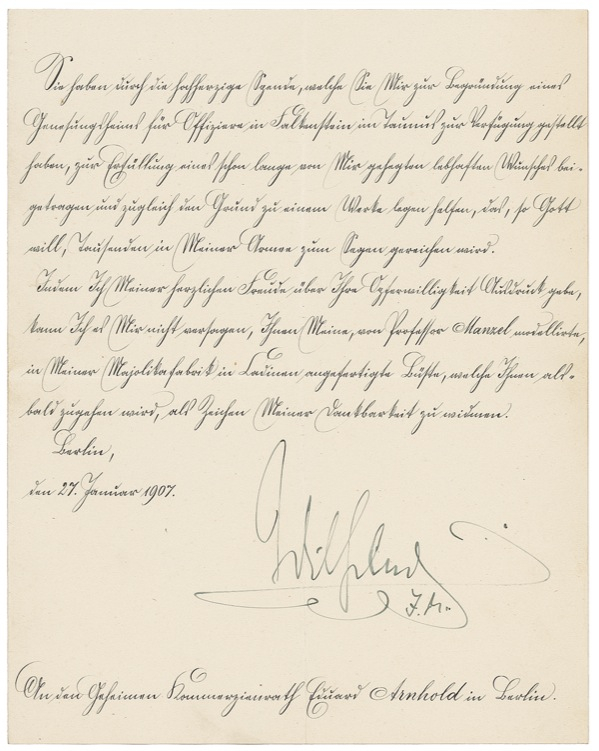 Sie haben durch die hochherzige Spende, welche Sie Mir zur Begründung eines
Genesungsheims für Offiziere in Falkenstein im Taunus zur Verfügung gestellt
haben, zur Erfüllung eines schon lange von Mir gehegten lebhaften Wunsches bei-
getragen und zugleich den Grund zu einem Werke legen helfen, das, so Gott
will, Tausenden in Meiner Armee zum Segen gereichen wird.
Indem Ich Meiner herzlichen Freude über Ihre Opferwilligkeit Ausdruck gebe,
kann Ich es Mir nicht versagen, Ihnen Meine, von Professor Manzel modellirte,
in Meiner Majolikafabrik in Cadinen angefertigte Büste, welche Ihnen als-
bald zugehen wird, als Zeichen Meiner Dankbarkeit zu widmen.
Berlin,
den 27. Januar 1907.
Wilhelm
I.R.
An den Geheimen Kommerzienrath Eduard Arnhold in Berlin.